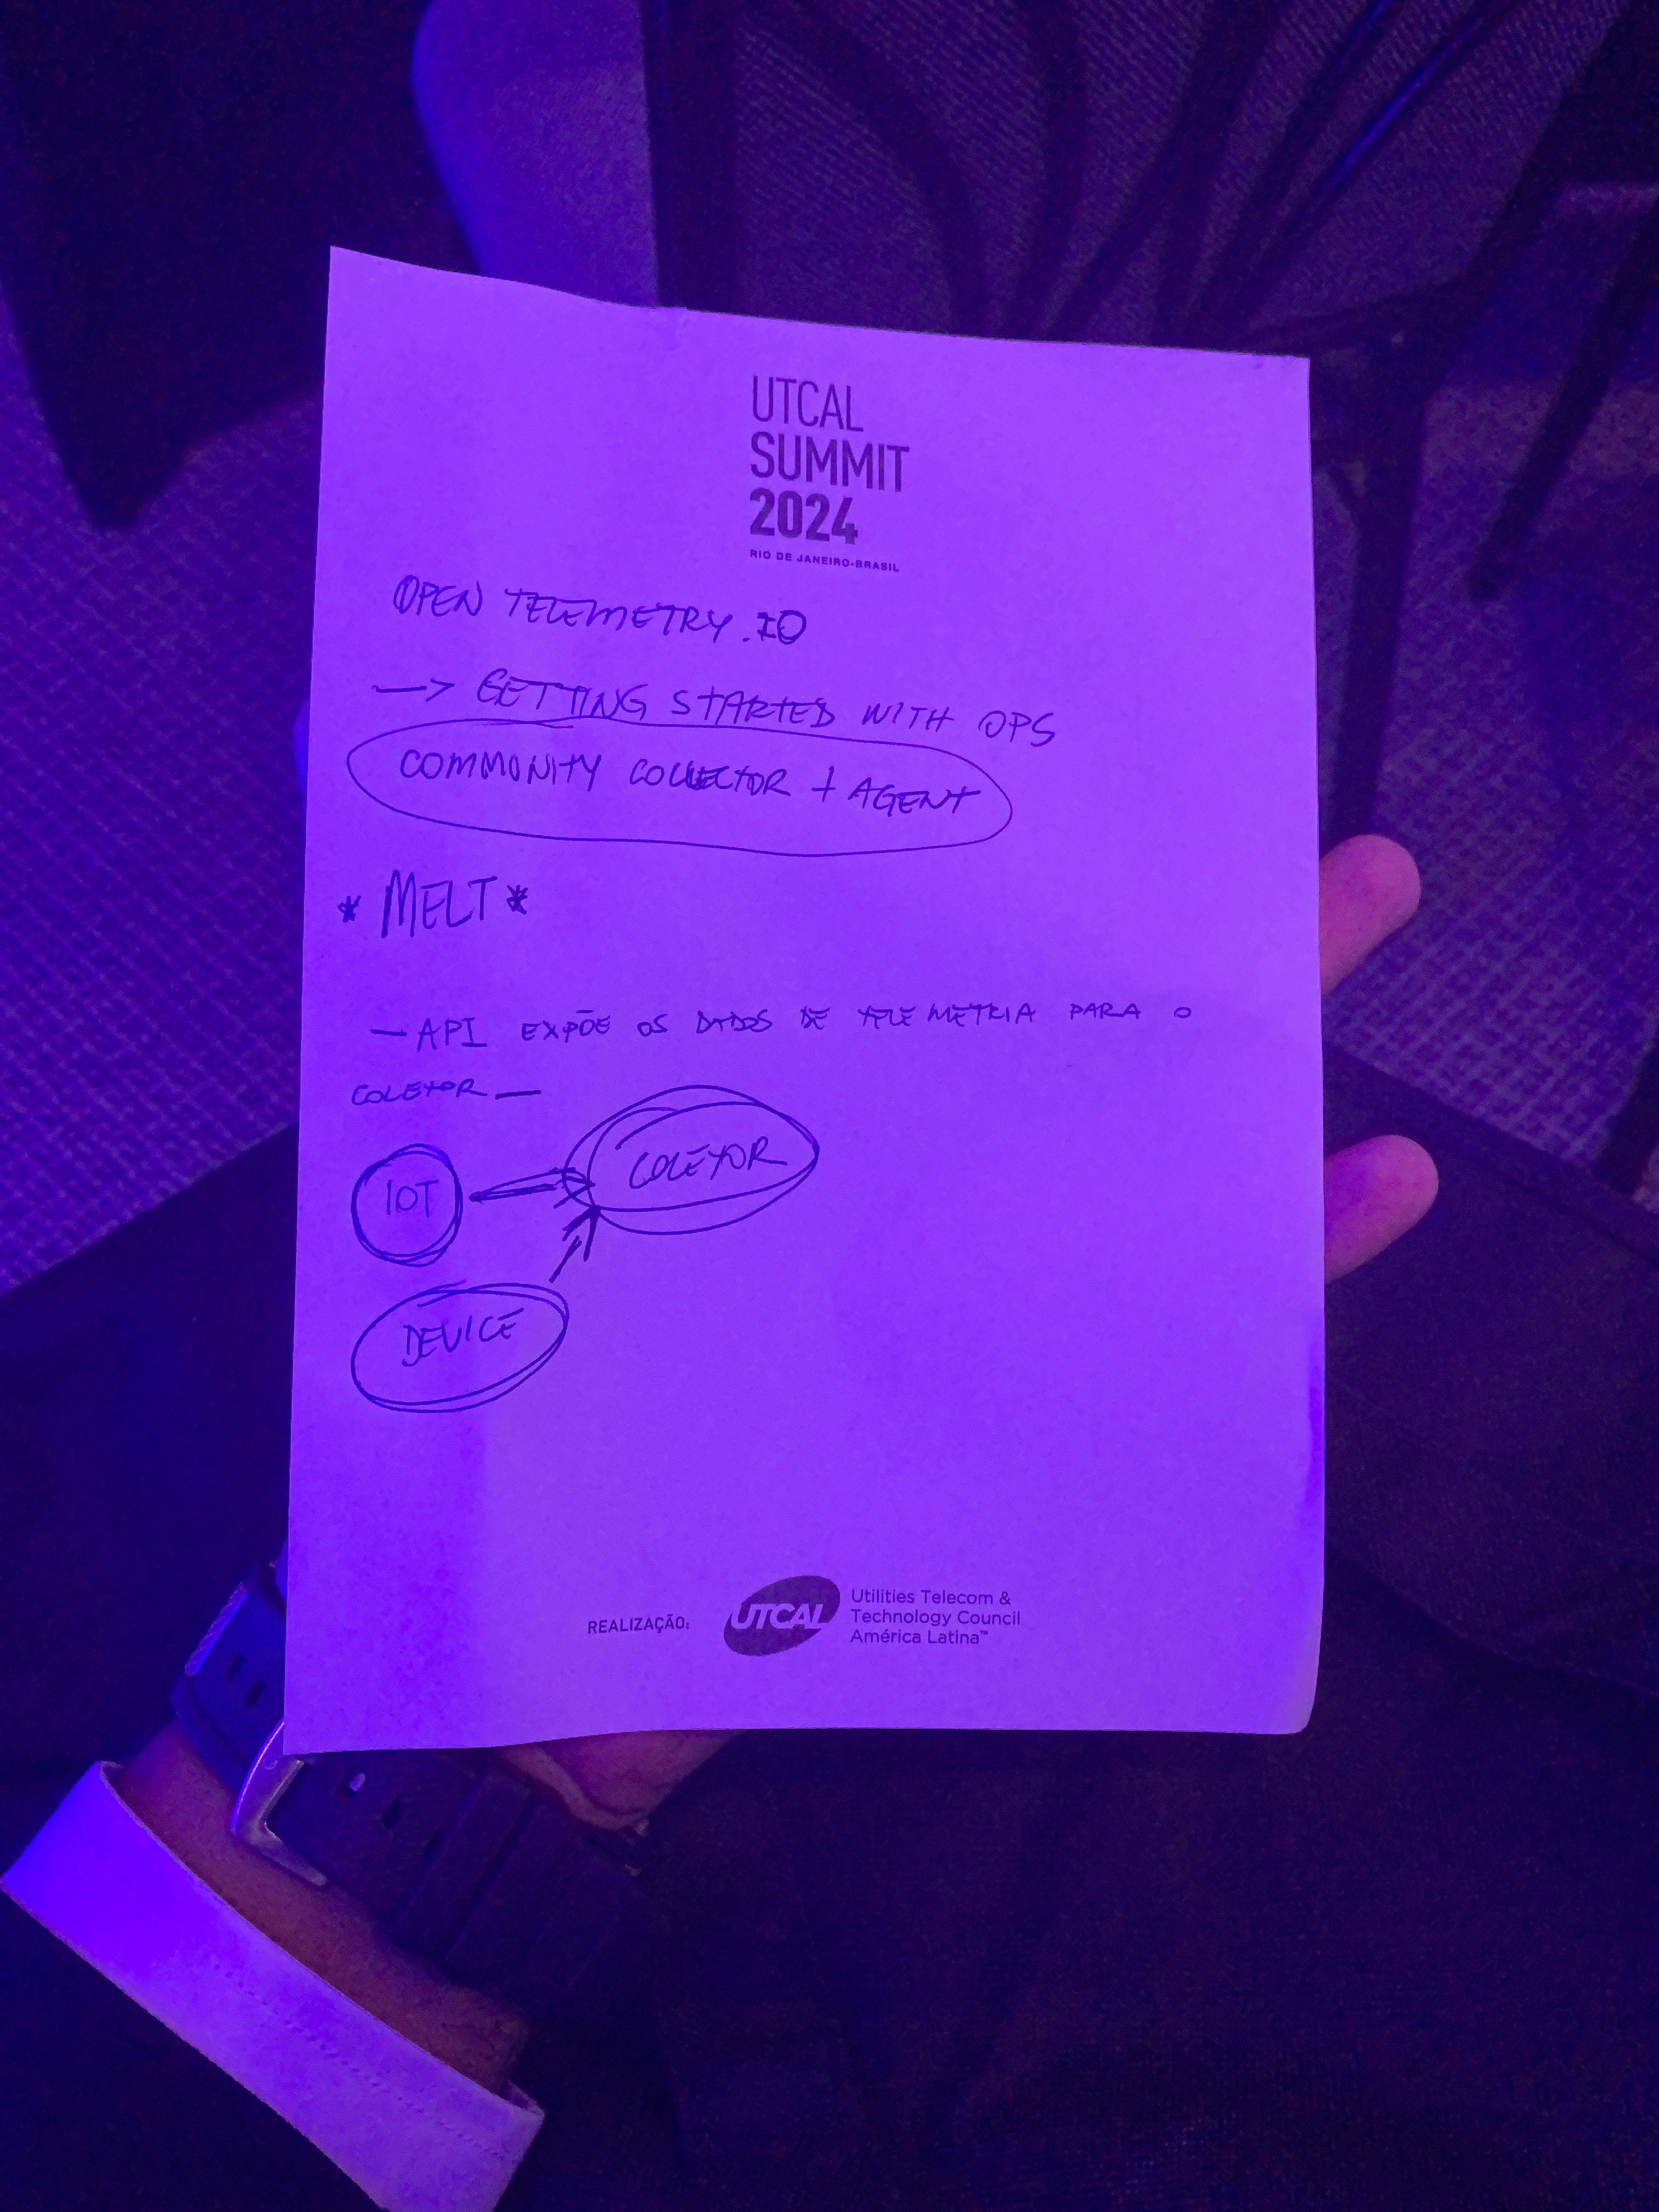 UTCAL
SUMMIT
2024
RIO DE JANEIRO-BRASIL
OPEN TELEMETRY.IO
→ GETTING STARTED WITH OPS
COMMUNITY COLLECTOR + AGENT
* MELT *
— API EXPÕE OS DADOS DE TELEMETRIA PARA O
COLETOR —
COLETOR
IOT
DEVICE
REALIZAÇÃO:
UTCAL
Utilities Telecom &
Technology Council
América Latina™